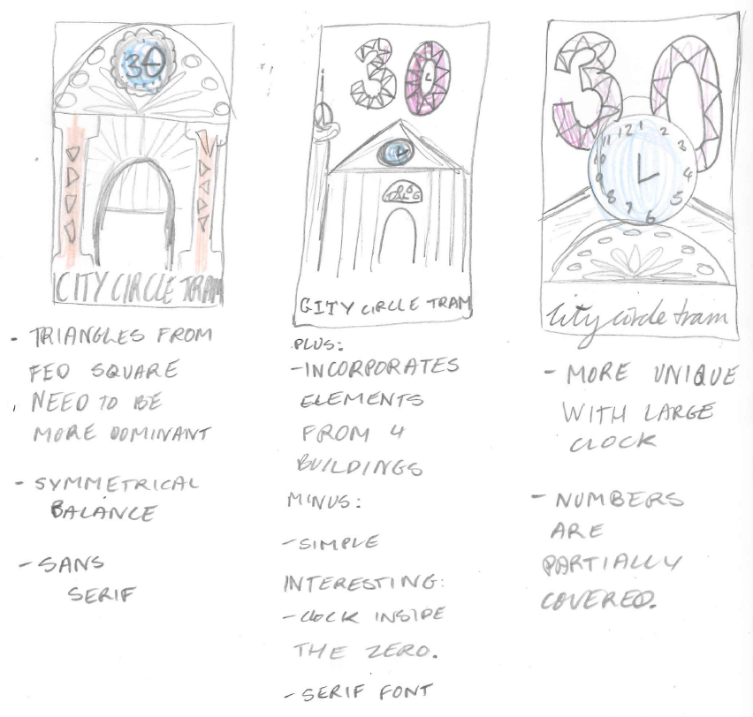 30
CITY CIRCLE TRAM
- TRIANGLES FROM
FED SQUARE
NEED TO BE
MORE DOMINANT
- SYMMETRICAL
BALANCE
- SANS
SERIF
30
CITY CIRCLE TRAM
PLUS:
- INCORPORATES
ELEMENTS
FROM 4
BUILDINGS
MINUS:
- SIMPLE
INTERESTING:
- CLOCK INSIDE
THE ZERO.
- SERIF FONT
30
11 12 1 2 3 4 5 6 7 8 9 10
City circle tram
- MORE UNIQUE
WITH LARGE
CLOCK
- NUMBERS
ARE
PARTIALLY
COVERED.